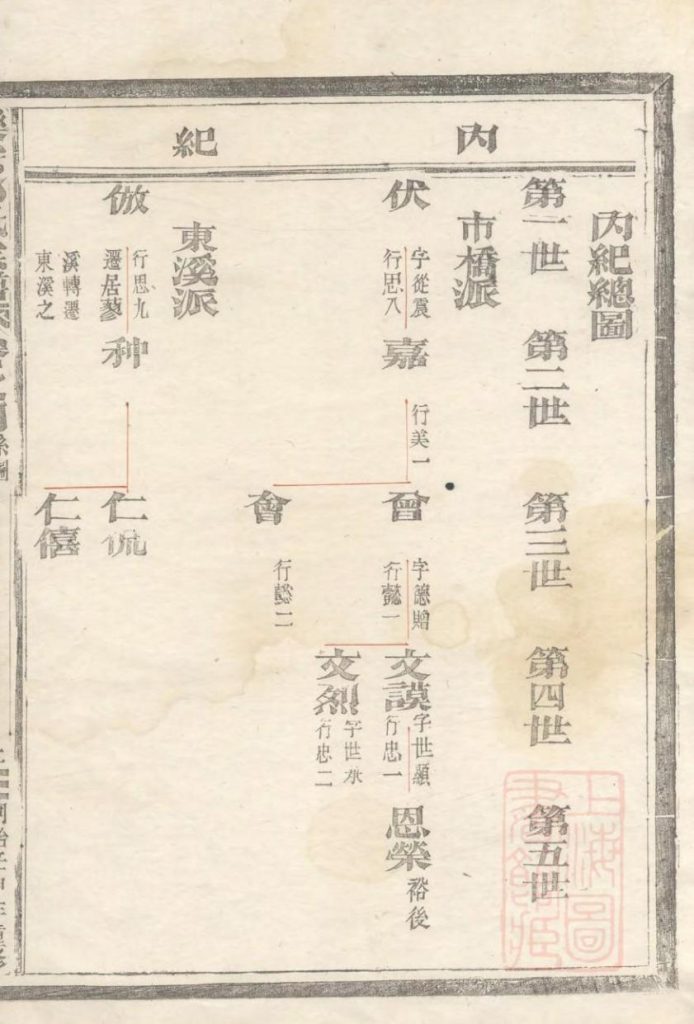 丙紀
丙紀總圖
第一世 第二世 第三世 第四世 第五世
市橋派
伏
字從震
行思八
嘉
行美一
曾
字德贈
行懿一
文謨
字世顯
行忠一
恩榮
裕後
文烈
字世承
行忠二
會
行懿二
東溪派
倣
行思九
遷居蓼
溪轉遷
東溪之
种
仁侃
仁僖
上海圖
書館藏